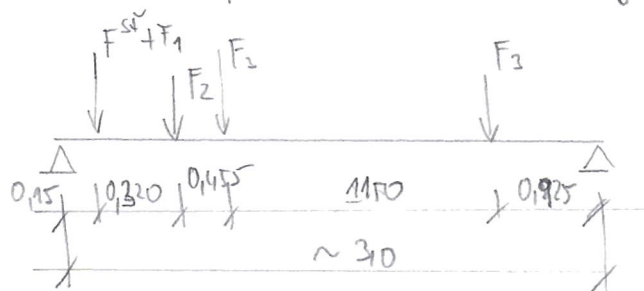 F^sť+F1
F2
F3
F3
0,15 0,320 0,455 1150 0,925
~ 3,0